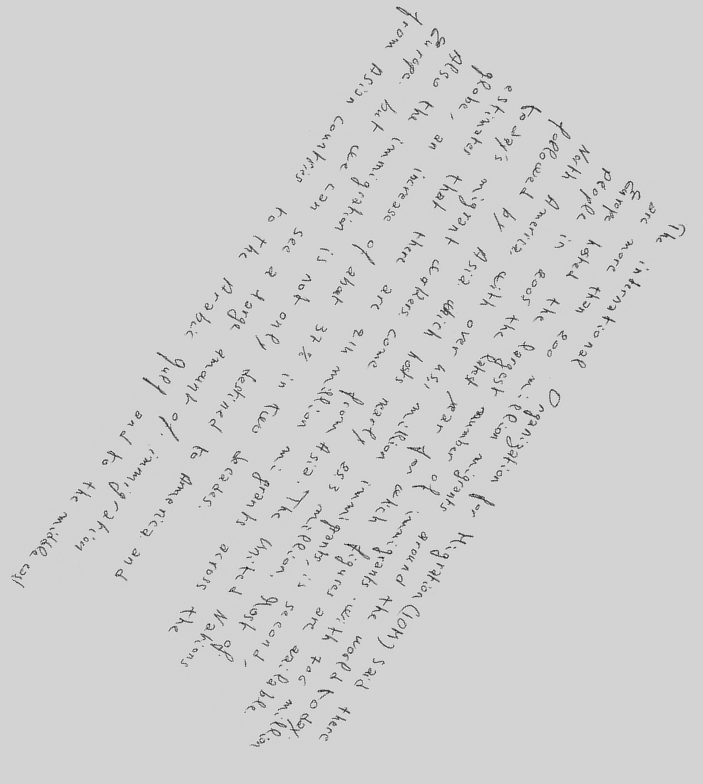 The international Organization for Migration (IOM) said there
are more than 200 million migrants around the world today.
Europe hosted the largest number of immigrants. with 706 million
people in 2005 the lated year for which figures are available.
North America, with over 45,1 million immigrants, is second,
followed by Asia which hosts nearly 25.3 million. Most of
today's migrant workers come from Asia. The United Nations
estimates that there are 214 million migrants across the
globe, an increase of about 37% in two decades.
Also the immigration is not only destined to America and
Europe. but we can see a large amount of immigration
from Asian countries to the Arabic gulf and to the middle east